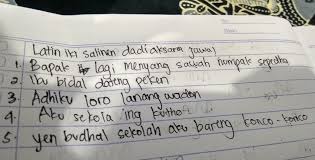 Latin iki salinen dadi aksara jawa!
1. Bapak lagi menyang sawah numpak sepedha
2. Ibu bidal dateng peken
3. Adhiku loro lanang wadon
4. Aku sekola ing kutho
5. yen budhal sekolah aku bareng konco-konco